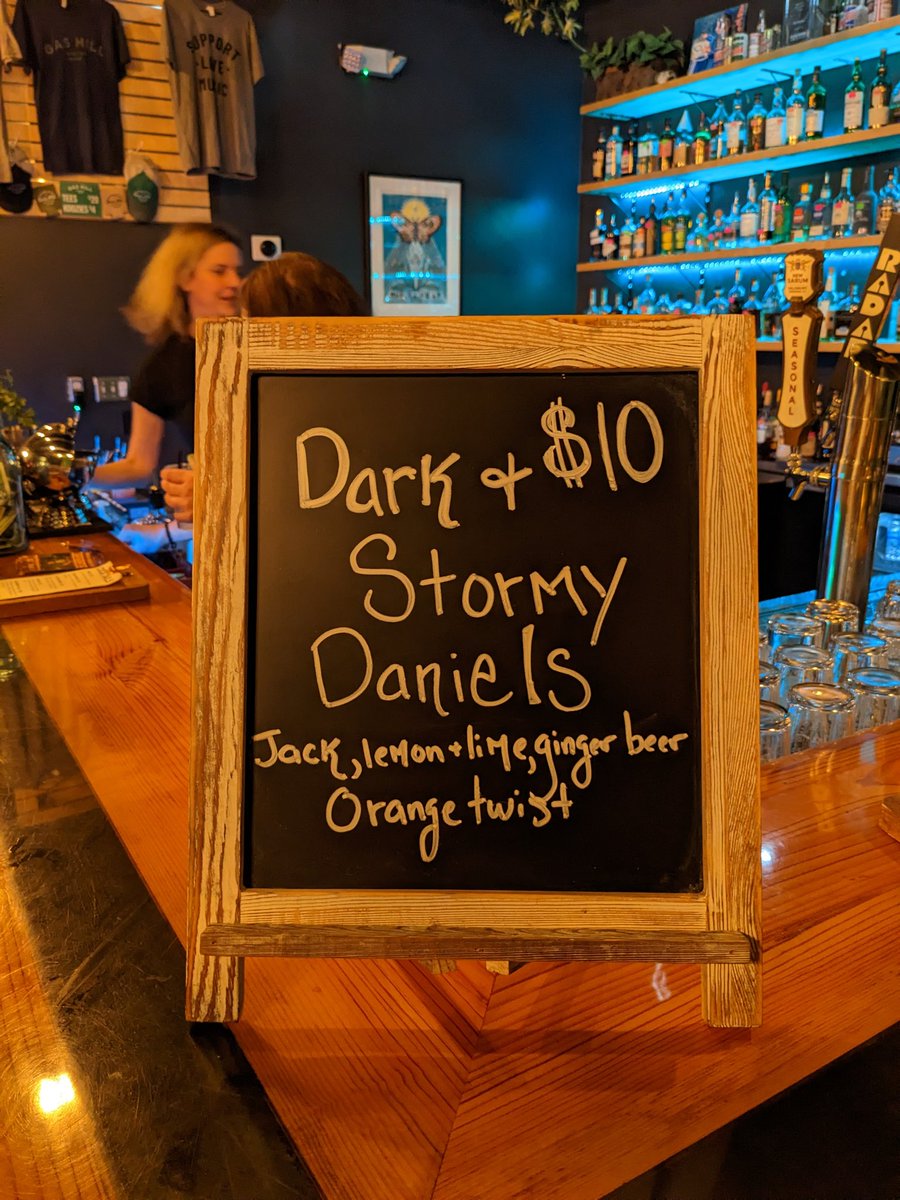 GAS HILL
SUPPORT
LIVE
MUSIC
TEES $20
SEASONAL
RADAR
Dark + $10
Stormy
Daniels
Jack, lemon + lime, ginger beer
Orange twist